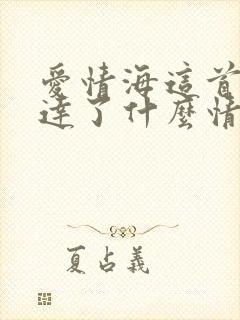 愛情海這首
達了什麼情
夏占義